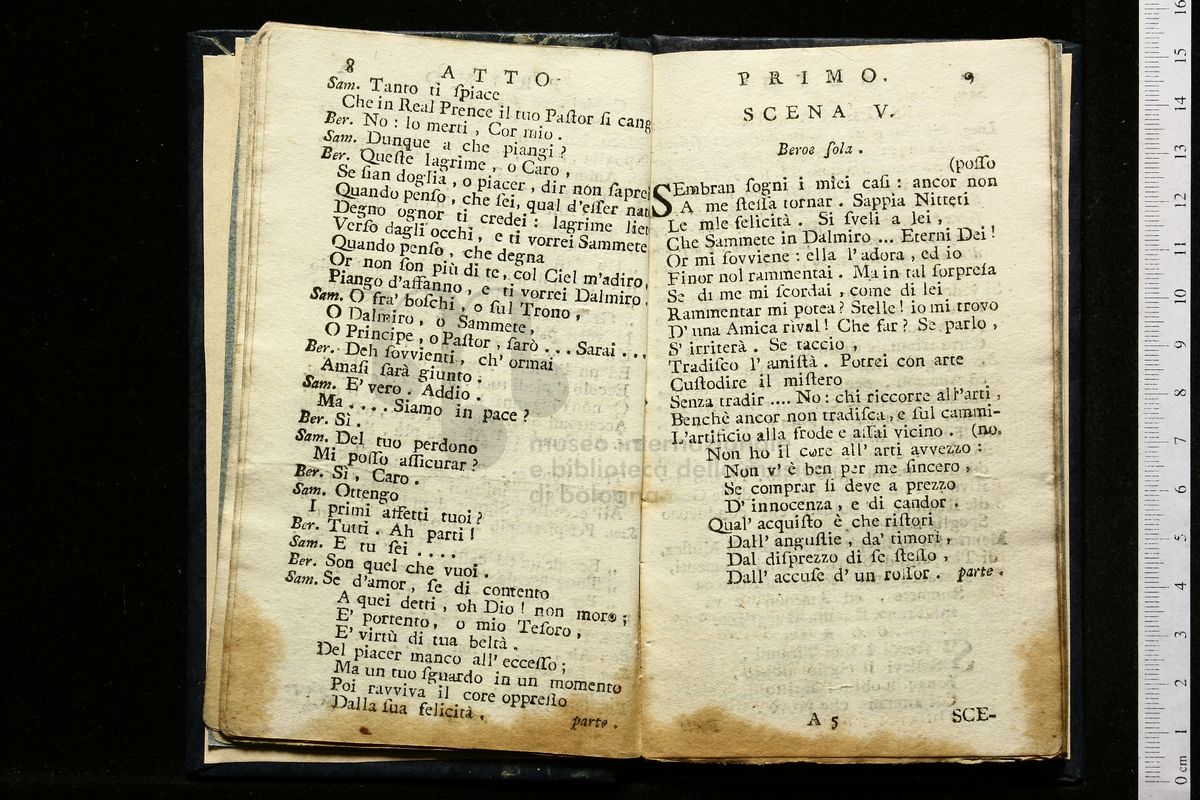 8
A T T O
Sam. Tanto ti ſpiace
Che in Real Prence il tuo Paſtor ſi cang
Ber. No : lo merti , Cor mio .
Sam. Dunque a che piangi ?
Ber. Queſte lagrime , o Caro ,
Se ſian doglia , o piacer , dir non ſapre
Quando penſo , che ſei, qual d'eſſer nat
Degno ognor ti credei : lagrime liet
Verſo dagli occhi , e ti vorrei Sammete
Quando penſo , che degna
Or non ſon più di te, col Ciel m'adiro,
Piango d'affanno , e ti vorrei Dalmiro .
Sam. O fra' boſchi , o ſul Trono ,
O Dalmiro , o Sammete ,
O Principe , o Paſtor , ſarò . . . Sarai . . .
Ber. Deh ſovvienti , ch' ormai
Amaſi ſarà giunto .
Sam. E' vero . Addio .
Ma . . . . Siamo in pace ?
Ber. Sì .
Sam. Del tuo perdono
Mi poſſo aſſicurar ?
Ber. Sì , Caro .
Sam. Ottengo
I primi affetti tuoi ?
Ber. Tutti . Ah parti !
Sam. E tu ſei . . . .
Ber. Son quel che vuoi .
Sam. Se d'amor , ſe di contento
A quei detti , oh Dio ! non moro ;
E' portento , o mio Teſoro ,
E' virtù di tua beltà .
Del piacer manco all' ecceſſo ;
Ma un tuo ſguardo in un momento
Poi ravviva il core oppreſſo
Dalla ſua felicità .
parte .
P R I M O .
9
SCENA V.
Beroe ſola .
(poſſo
SEmbran ſogni i miei caſi : ancor non
A me ſteſſa tornar . Sappia Nitteti
Le mIe felicità . Si ſveli a lei ,
Che Sammete in Dalmiro ... Eterni Dei !
Or mi ſovviene : ella l' adora , ed io
Finor nol rammentai . Ma in tal ſorpreſa
Se di me mi ſcordai , come di lei
Rammentar mi potea ? Stelle ! io mi trovo
D' una Amica rival ! Che far ? Se parlo ,
S' irriterà . Se taccio ,
Tradiſco l' amiſtà . Potrei con arte
Cuſtodire il miſtero
Senza tradir .... No : chi ricorre all'arti ,
Benchè ancor non tradiſca , e ſul cammi-
L'artificio alla frode e aſſai vicino . (no.
Non ho il core all' arti avvezzo :
Non v' è ben per me ſincero ,
Se comprar ſi deve a prezzo
D' innocenza , e di candor .
Qual' acquiſto è che riſtori
Dall' anguſtie , da' timori ,
Dal diſprezzo di ſe ſteſſo ,
Dall' accuſe d' un roſſor . parte .
A 5
SCE-
museo internazionale
e biblioteca della
di bologna
0 cm 1 2 3 4 5 6 7 8 9 10 11 12 13 14 15 16